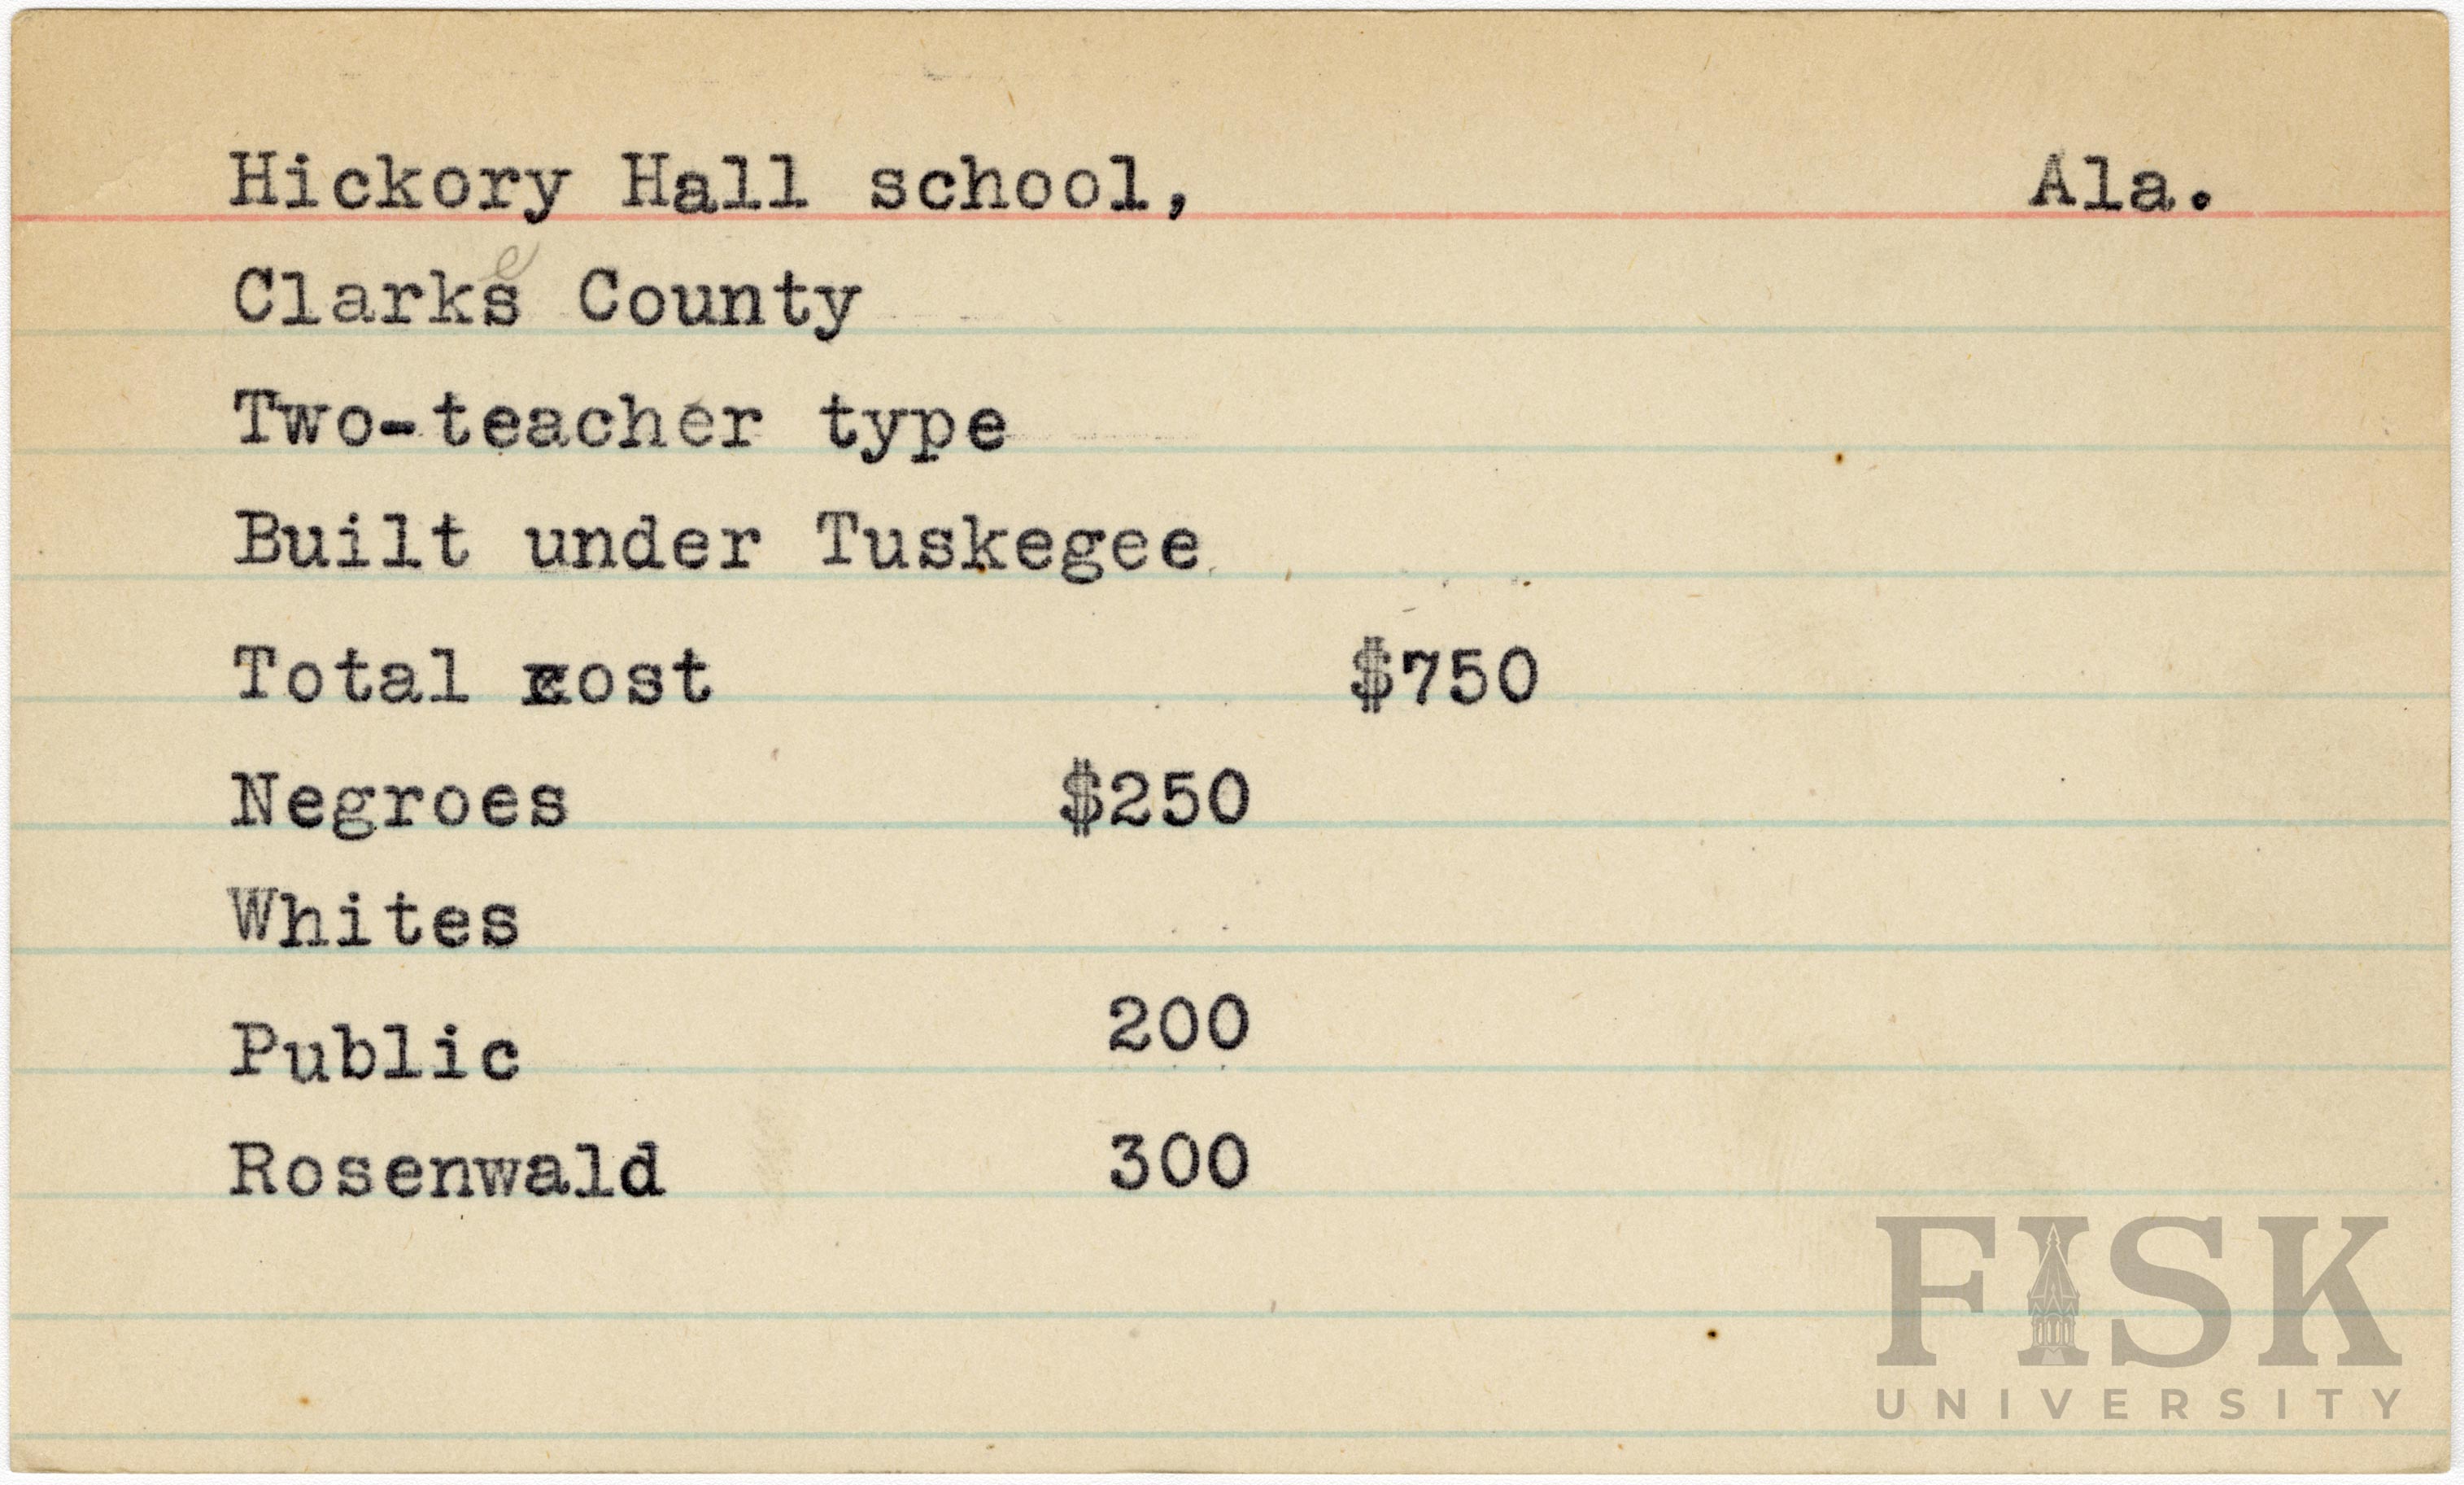 Hickory Hall school, Ala.
Clarks County
e
Two-teacher type
Built under Tuskegee
Total cost $750
Negroes $250
Whites
Public 200
Rosenwald 300
FISK
UNIVERSITY